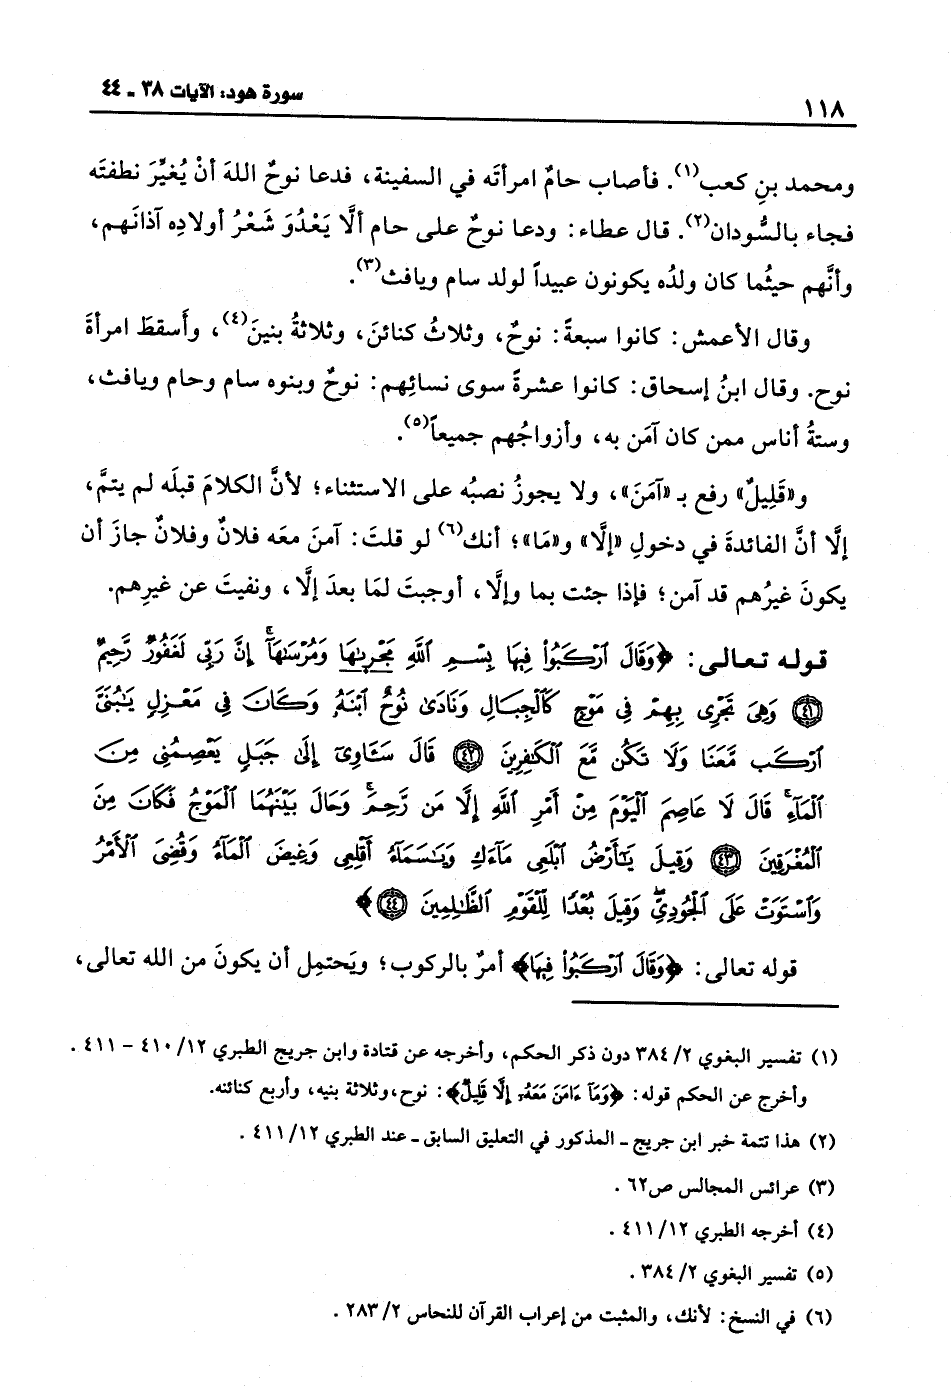 سورة هود: الآيات ٣٨ ـ ٤٤
١١٨
ومحمد بنِ كعب(١). فأصاب حامٌ امرأتَه في السفينة، فدعا نوحٌ اللهَ أنْ يُغيِّرَ نطفتَه
فجاء بالسُّودان(٢). قال عطاء: ودعا نوحٌ على حام ألَّا يَعْدُوَ شَعْرُ أولادِه آذانَهم،
وأنَّهم حيثُما كان ولدُه يكونون عبيداً لولد سام ويافث(٣).
وقال الأعمش: كانوا سبعةً: نوحٌ، وثلاثُ كنائنَ، وثلاثةُ بنينَ(٤)، وأَسقطَ امرأةَ
نوح. وقال ابنُ إسحاق: كانوا عشرةً سوى نسائِهم: نوحٌ وبنوه سام وحام ويافث،
وستةُ أناس ممن كان آمَن به، وأزواجُهم جميعاً(٥).
و«قَلِيلٌ» رفع بـ «آمَنَ»، ولا يجوزُ نصبُه على الاستثناء؛ لأنَّ الكلامَ قبلَه لم يتمَّ،
إلَّا أنَّ الفائدةَ في دخولِ «إلَّا» و«مَا»؛ أنك(٦) لو قلتَ: آمنَ معَه فلانٌ وفلانٌ جازَ أن
يكونَ غيرُهم قد آمن؛ فإذا جئت بما وإلَّا، أوجبتَ لمَا بعدَ إلَّا، ونفيتَ عن غيرِهم.
قوله تعالى: ﴿وَقَالَ ٱرْكَبُوا۟ فِيهَا بِسْمِ ٱللَّهِ مَجْر۪ىٰهَا وَمُرْسَىٰهَآ ۚ إِنَّ رَبِّى لَغَفُورٌ رَّحِيمٌ
﴿٤١﴾ وَهِىَ تَجْرِى بِهِمْ فِى مَوْجٍ كَٱلْجِبَالِ وَنَادَىٰ نُوحٌ ٱبْنَهُۥ وَكَانَ فِى مَعْزِلٍ يَـٰبُنَىَّ
ٱرْكَب مَّعَنَا وَلَا تَكُن مَّعَ ٱلْكَـٰفِرِينَ ﴿٤٢﴾ قَالَ سَـَٔاوِىٓ إِلَىٰ جَبَلٍ يَعْصِمُنِى مِنَ
ٱلْمَآءِ ۚ قَالَ لَا عَاصِمَ ٱلْيَوْمَ مِنْ أَمْرِ ٱللَّهِ إِلَّا مَن رَّحِمَ ۚ وَحَالَ بَيْنَهُمَا ٱلْمَوْجُ فَكَانَ مِنَ
ٱلْمُغْرَقِينَ ﴿٤٣﴾ وَقِيلَ يَـٰٓأَرْضُ ٱبْلَعِى مَآءَكِ وَيَـٰسَمَآءُ أَقْلِعِى وَغِيضَ ٱلْمَآءُ وَقُضِىَ ٱلْأَمْرُ
وَٱسْتَوَتْ عَلَى ٱلْجُودِىِّ ۖ وَقِيلَ بُعْدًا لِّلْقَوْمِ ٱلظَّـٰلِمِينَ ﴿٤٤﴾﴾
قوله تعالى: ﴿وَقَالَ ٱرْكَبُوا۟ فِيهَا﴾ أمرٌ بالركوب؛ ويَحتمِل أن يكونَ من الله تعالى،
(١) تفسير البغوي ٢/ ٣٨٤ دون ذكر الحكم، وأخرجه عن قتادة وابن جريج الطبري ١٢/ ٤١٠ - ٤١١ .
وأخرج عن الحكم قوله: ﴿وَمَآ ءَامَنَ مَعَهُۥٓ إِلَّا قَلِيلٌ﴾: نوح، وثلاثة بنيه، وأربع كنائنه.
(٢) هذا تتمة خبر ابن جريج ـ المذكور في التعليق السابق ـ عند الطبري ١٢/ ٤١١ .
(٣) عرائس المجالس ص٦٢ .
(٤) أخرجه الطبري ١٢/ ٤١١ .
(٥) تفسير البغوي ٢/ ٣٨٤ .
(٦) في النسخ: لأنك، والمثبت من إعراب القرآن للنحاس ٢/ ٢٨٣ .